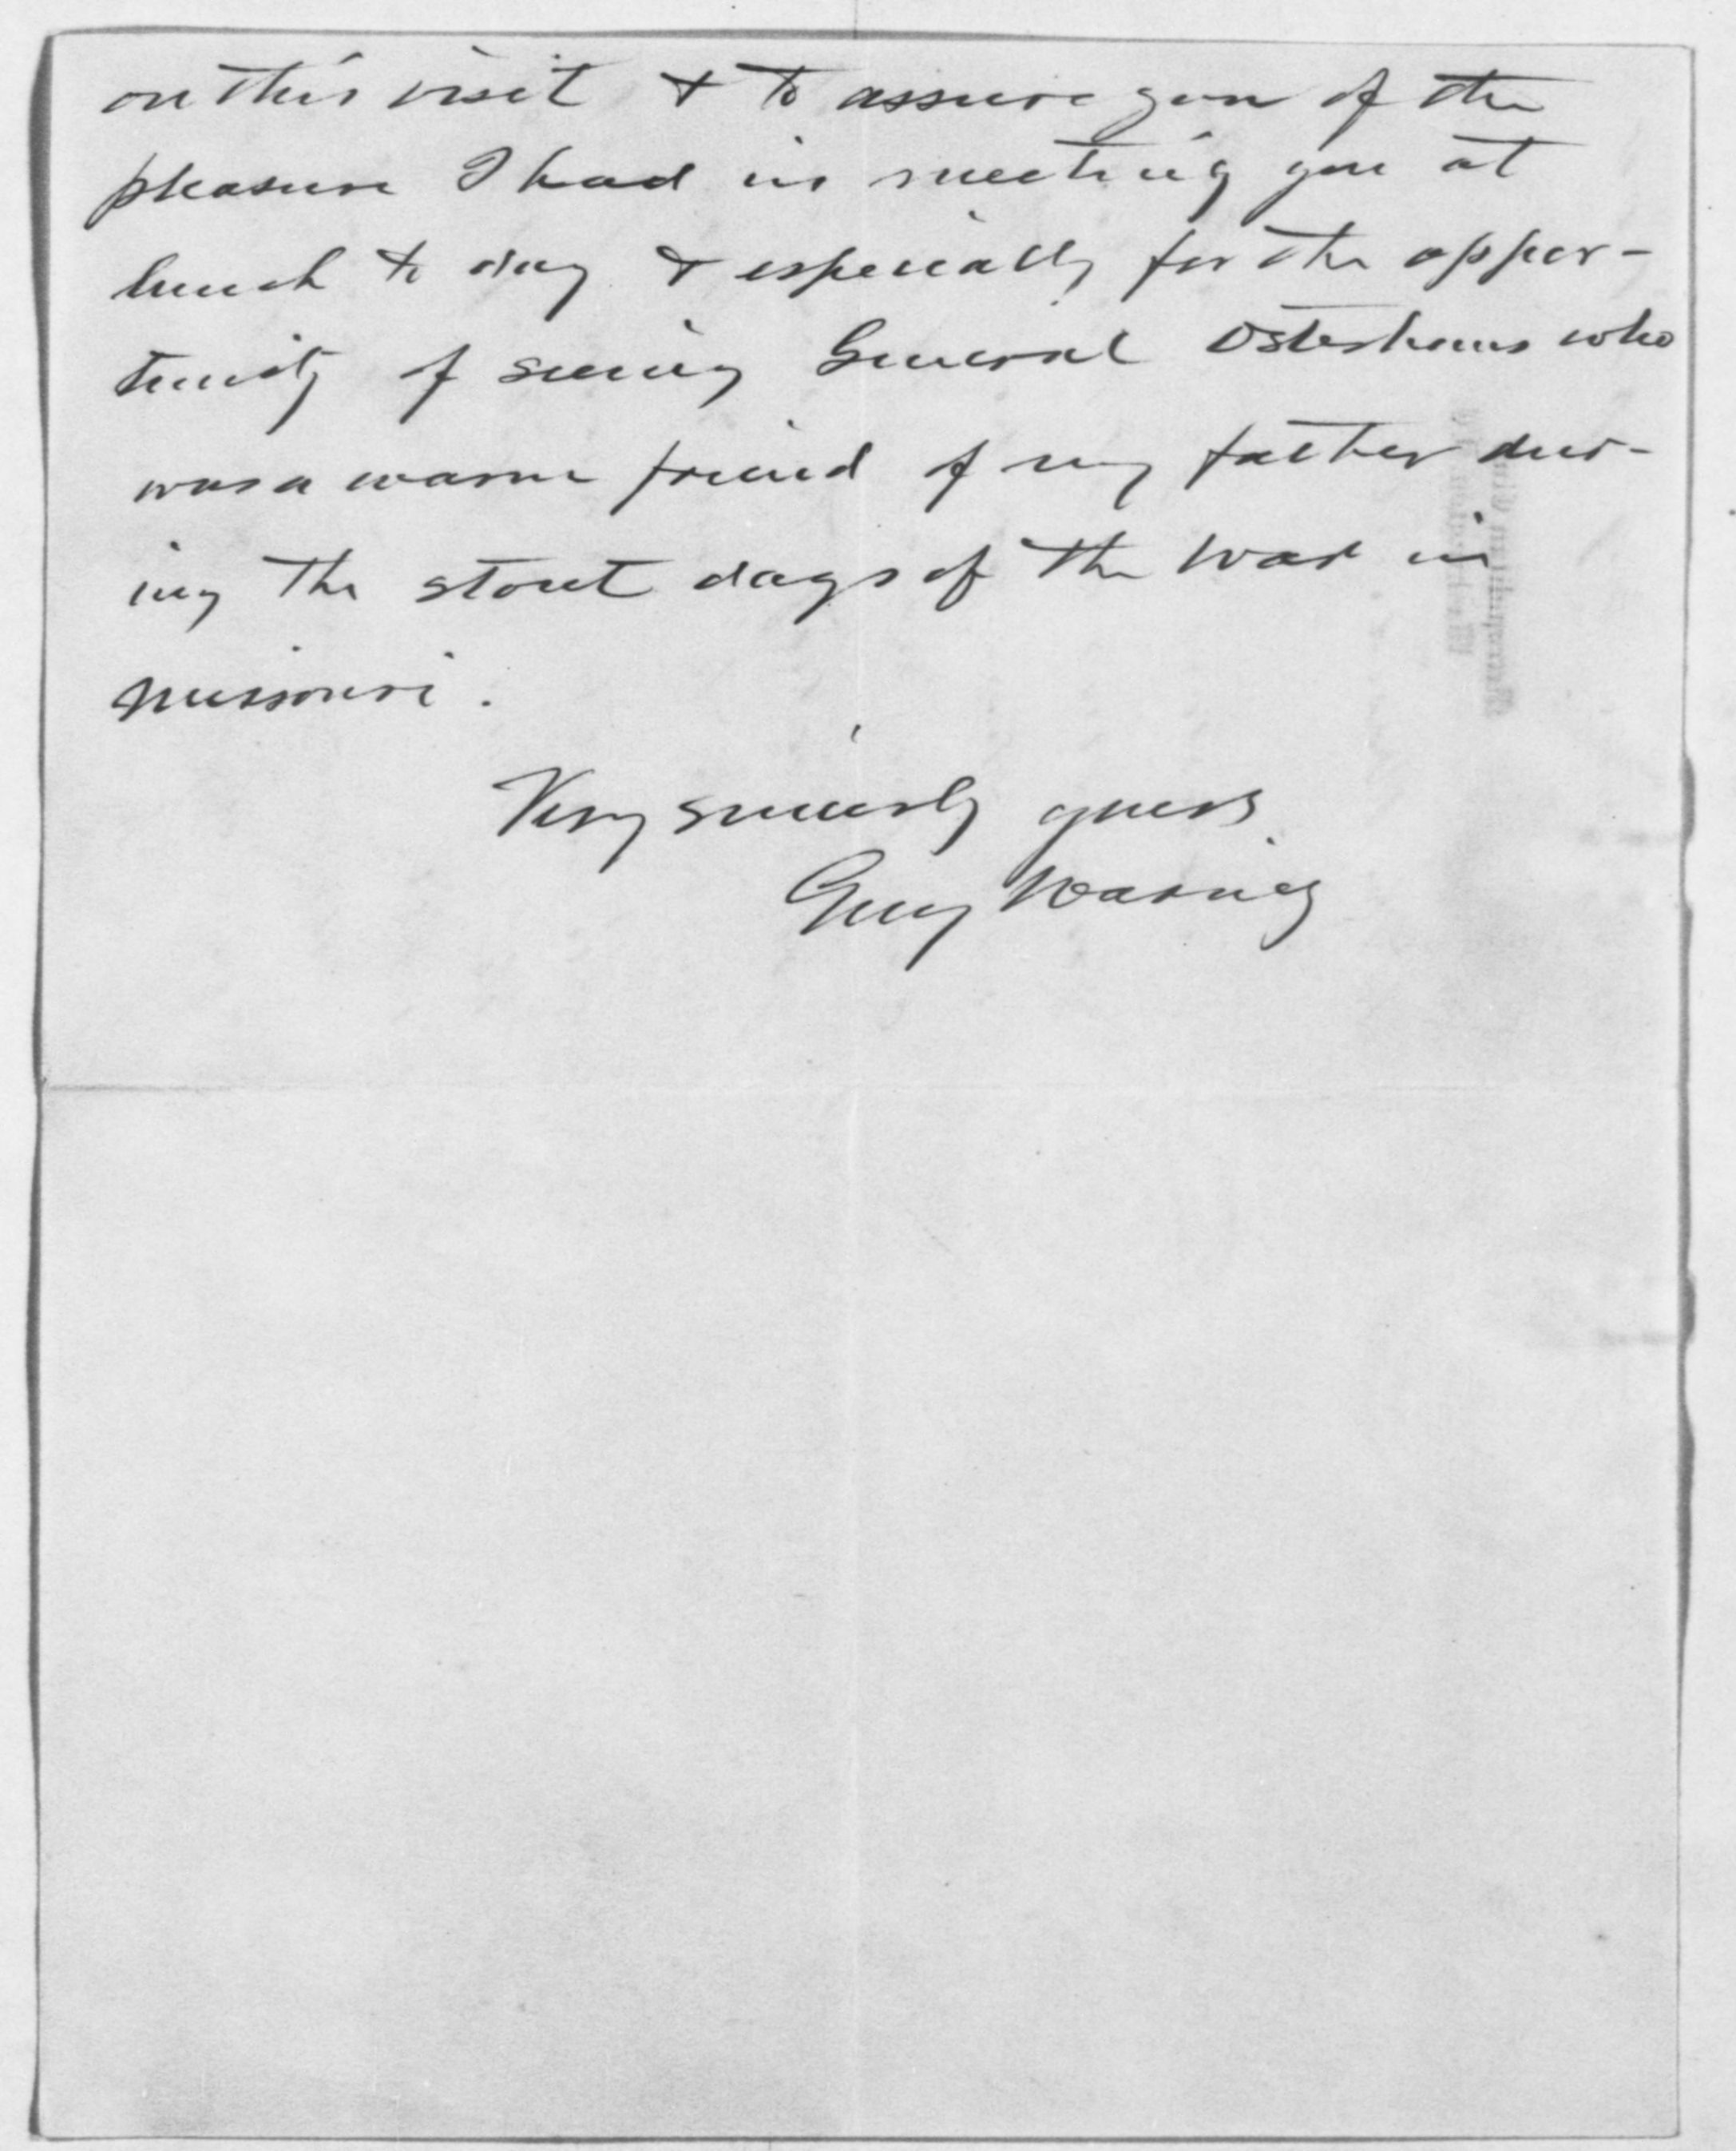 on this visit & to assure you of the
pleasure I had in meeting you at
lunch to day & especially for the oppor-
tunity of seeing General Osterhaus who
was a warm friend of my father dur-
ing the stout days of the War in
Missouri.
Very sincerely yours
Guy Waring